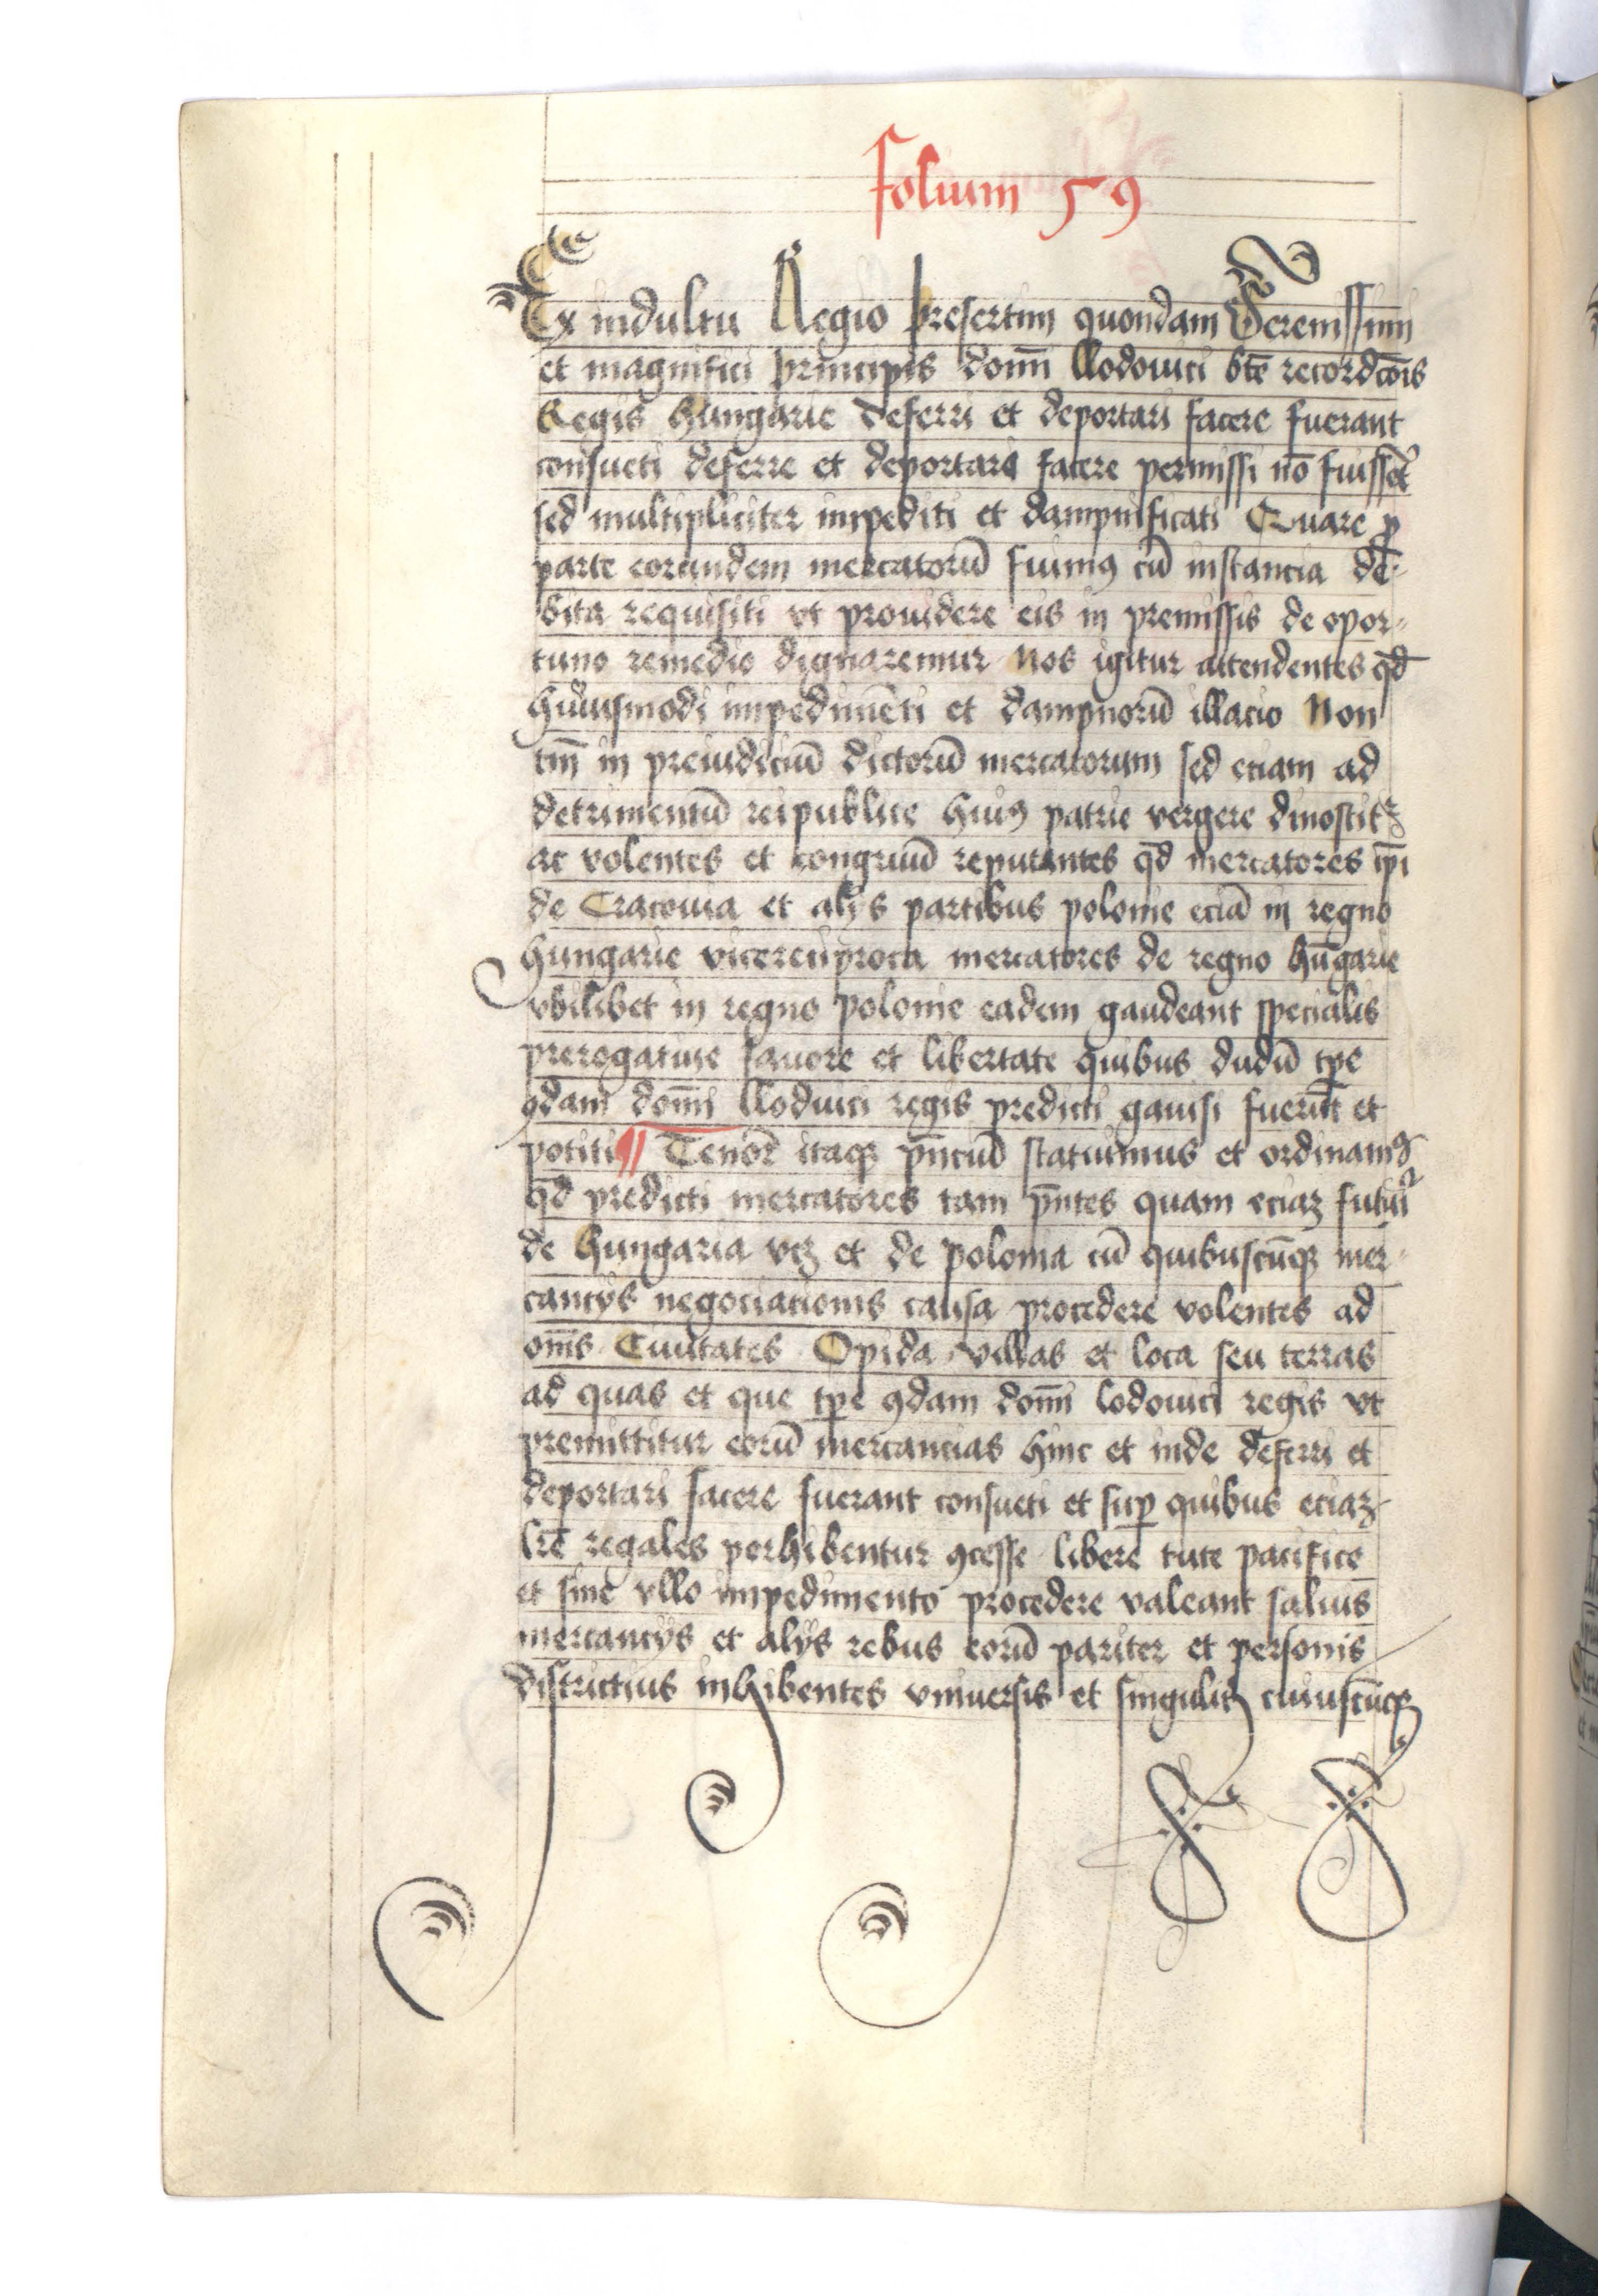 folium 59
Ex indultu Regio presertim quondam Serenissimi
et magnifici principis domī llodouici btē recordcōis
Regis hungarie deferri et deportari facere fuerant
consueti deferre et deportari facere permissi nō fuissēt
sed multipliciter impediti et dampnificati Quare ꝓ
parte eorundem mercatorū fuimꝰ cū instancia de-
bita requisiti vt prouidere eis in premissis de opor-
tuno remedio dignaremur Nos igitur attendentes qd̄
huiusmodi impedimēti et dampnorū illacio Non
tm̄ in preiudiciū dictorū mercatorum sed eciam ad
detrimentū reipublice huiꝰ patrie vergere dinoscitᷣ
ac volentes et congruū reputantes qd̄ mercatores ip̄i
de Cracouia et alijs partibus polonie eciā in regno
hungarie vicereciproca mercatores de regno hūgarie
vbilibet in regno polonie eadem gaudeant specialis
prerogatiue fauore et libertate quibus dudū tꝑe
ꝯdam domī llodouici regis predicti gauisi fuerūt et
potiti ¶ Tenōr itaqꝫ pn̄ciū statuimus et ordinamꝰ
qd̄ predicti mercatores tam pn̄tes quam eciaꝫ futuri
de hungaria vcꝫ et de polonia cū quibuscūqꝫ mer-
cancijs negociationis causa procedere volentes ad
om̄s Ciuitates Opida villas et loca seu terras
ad quas et que tꝑe ꝯdam domī lodouici regis vt
premittitur eorū mercancias hinc et inde deferri et
deportari facere fuerant consueti et suꝑ quibus eciaꝫ
lrē regales perhibentur ꝯcesse libere tute pacifice
et sine vllo impedimento procedere valeant saluis
mercancijs et alijs rebus eorū pariter et personis
districtius inhibentes vniuersis et singulis cuiuscūqꝫ